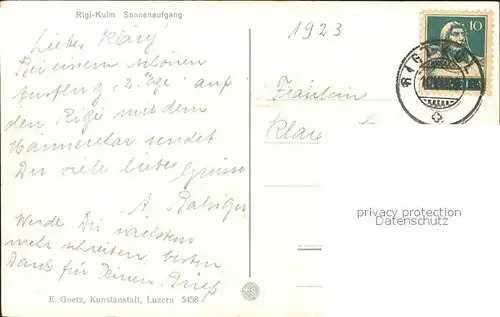 Rigi-Kulm Sonnenaufgang
1923
10
Liebes Klärly
Bei einem schönen
Ausflug, 2 Tge auf
den Rigi mit dem
Männerchor sendet
Dir viele liebe Grüsse
A. Balsiger
Werde Dir nächstens
mehr schreiben, besten
Dank für Deinen Brief
Fräulein
RIGI-KULM
privacy protection
Datenschutz
E. Goetz, Kunstanstalt, Luzern 5458